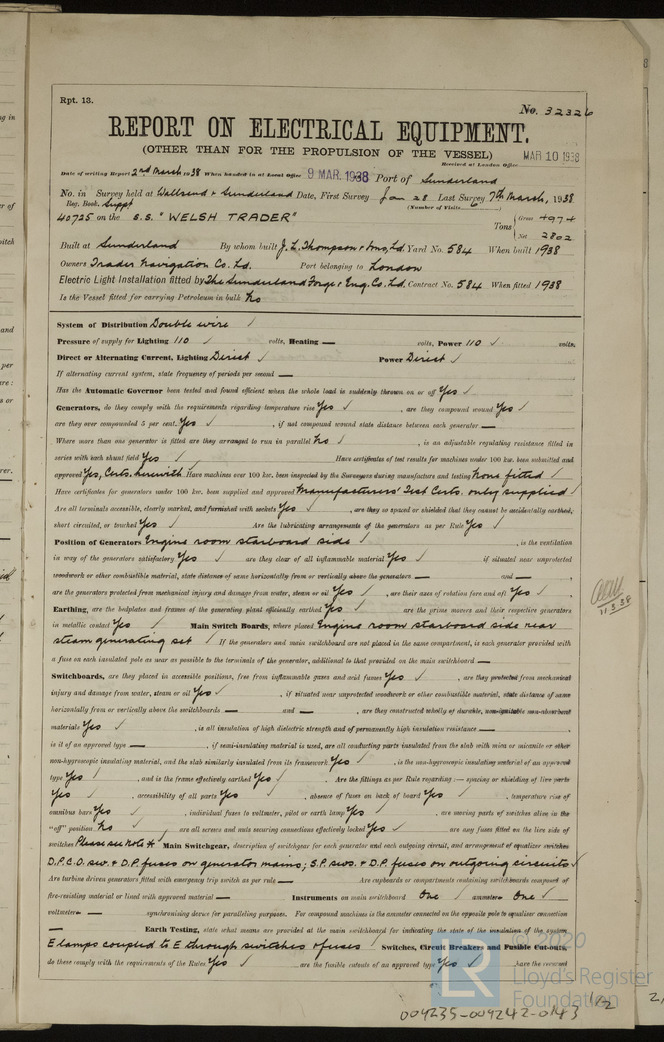 Rpt. 13.
No. 32326
REPORT ON ELECTRICAL EQUIPMENT.
(OTHER THAN FOR THE PROPULSION OF THE VESSEL)
MAR 10 1938
Received at London Office
Date of writing Report 2nd March 1938 When handed in at Local Office 9 MAR. 1938 Port of Sunderland
No. in Survey held at Wallsend & Sunderland Date, First Survey Jan 28 Last Survey 7th March, 1938
Reg. Book. Suppt (Number of Visits 6)
40725 on the S.S. "WELSH TRADER" Tons Gross 4974
Net 2802
Built at Sunderland By whom built J. L. Thompson & Sons, Ltd. Yard No. 584 When built 1938
Owners Trader Navigation Co. Ltd. Port belonging to London
Electric Light Installation fitted by The Sunderland Forge & Eng. Co. Ltd. Contract No. 584 When fitted 1938
Is the Vessel fitted for carrying Petroleum in bulk No
System of Distribution Double wire
Pressure of supply for Lighting 110 volts, Heating — volts, Power 110 volts.
Direct or Alternating Current, Lighting Direct Power Direct
If alternating current system, state frequency of periods per second —
Has the Automatic Governor been tested and found efficient when the whole load is suddenly thrown on or off Yes
Generators, do they comply with the requirements regarding temperature rise Yes, are they compound wound Yes
are they over compounded 5 per cent. Yes, if not compound wound state distance between each generator —
Where more than one generator is fitted are they arranged to run in parallel No, is an adjustable regulating resistance fitted in
series with each shunt field Yes Have certificates of test results for machines under 100 kw. been submitted and
approved Yes, Certs. herewith Have machines over 100 kw. been inspected by the Surveyors during manufacture and testing None fitted
Have certificates for generators under 100 kw. been supplied and approved Manufacturers' Test Certs. only supplied
Are all terminals accessible, clearly marked, and furnished with sockets Yes, are they so spaced or shielded that they cannot be accidentally earthed,
short circuited, or touched Yes Are the lubricating arrangements of the generators as per Rule Yes
Position of Generators Engine room starboard side, is the ventilation
in way of the generators satisfactory Yes are they clear of all inflammable material Yes if situated near unprotected
woodwork or other combustible material, state distance of same horizontally from or vertically above the generators — and —,
are the generators protected from mechanical injury and damage from water, steam or oil Yes, are their axes of rotation fore and aft Yes
Earthing, are the bedplates and frames of the generating plant efficiently earthed Yes are the prime movers and their respective generators
in metallic contact Yes Main Switch Boards, where placed Engine room starboard side near
steam generating set If the generators and main switchboard are not placed in the same compartment, is each generator provided with
a fuse on each insulated pole as near as possible to the terminals of the generator, additional to that provided on the main switchboard —
Switchboards, are they placed in accessible positions, free from inflammable gases and acid fumes Yes, are they protected from mechanical
injury and damage from water, steam or oil Yes, if situated near unprotected woodwork or other combustible material, state distance of same
horizontally from or vertically above the switchboards — and —, are they constructed wholly of durable, non-ignitable non-absorbent
materials Yes, is all insulation of high dielectric strength and of permanently high insulation resistance —
is it of an approved type —, if semi-insulating material is used, are all conducting parts insulated from the slab with mica or micanite or other
non-hygroscopic insulating material, and the slab similarly insulated from its framework Yes, is the non-hygroscopic insulating material of an approved
type Yes, and is the frame effectively earthed Yes. Are the fittings as per Rule regarding:— spacing or shielding of live parts
Yes, accessibility of all parts Yes, absence of fuses on back of board Yes, temperature rise of
omnibus bars Yes, individual fuses to voltmeter, pilot or earth lamp Yes, are moving parts of switches alive in the
"off" position No are all screws and nuts securing connections effectively locked Yes are any fuses fitted on the live side of
switches Please see note * Main Switchgear, description of switchgear for each generator and each outgoing circuit, and arrangement of equalizer switches
D.P.C.O. sw. & D.P. fuses on generator mains; S.P. sws. & D.P. fuses on outgoing circuits
Are turbine driven generators fitted with emergency trip switch as per rule — Are cupboards or compartments containing switchboards composed of
fire-resisting material or lined with approved material — Instruments on main switchboard One ammeter One
voltmeter — synchronising device for paralleling purposes. For compound machines is the ammeter connected on the opposite pole to equaliser connection
— Earth Testing, state what means are provided at the main switchboard for indicating the state of the insulation of the system
E lamps coupled to E through switches & fuses Switches, Circuit Breakers and Fusible Cut-outs,
do these comply with the requirements of the Rules Yes are the fusible cutouts of an approved type Yes, have the reversed
11.3.38
© 2020
LR
Lloyd's Register
Foundation
1/2
004235-004242-0143